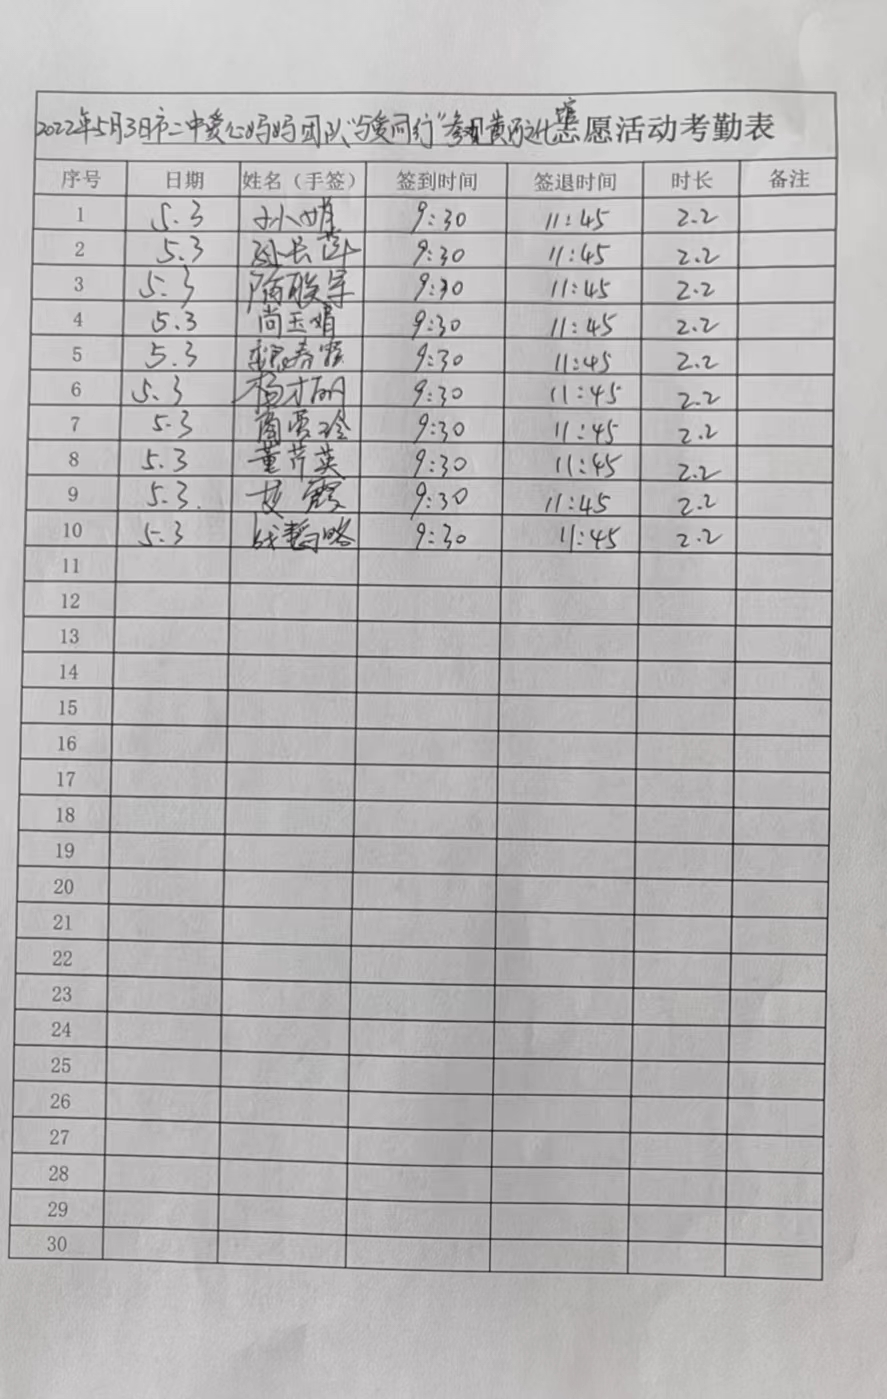 2022年5月3日市二中爱心妈妈团队"与爱同行"参观黄河文化馆志愿活动考勤表
序号 日期 姓名（手签） 签到时间 签退时间 时长 备注
1 5.3 9:30 11:45 2.2
2 5.3 9:30 11:45 2.2
3 5.3 9:30 11:45 2.2
4 5.3 尚玉娟 9:30 11:45 2.2
5 5.3 9:30 11:45 2.2
6 5.3 9:30 11:45 2.2
7 5.3 9:30 11:45 2.2
8 5.3 董芹英 9:30 11:45 2.2
9 5.3. 9:30 11:45 2.2
10 5.3 9:30 11:45 2.2
11
12
13
14
15
16
17
18
19
20
21
22
23
24
25
26
27
28
29
30